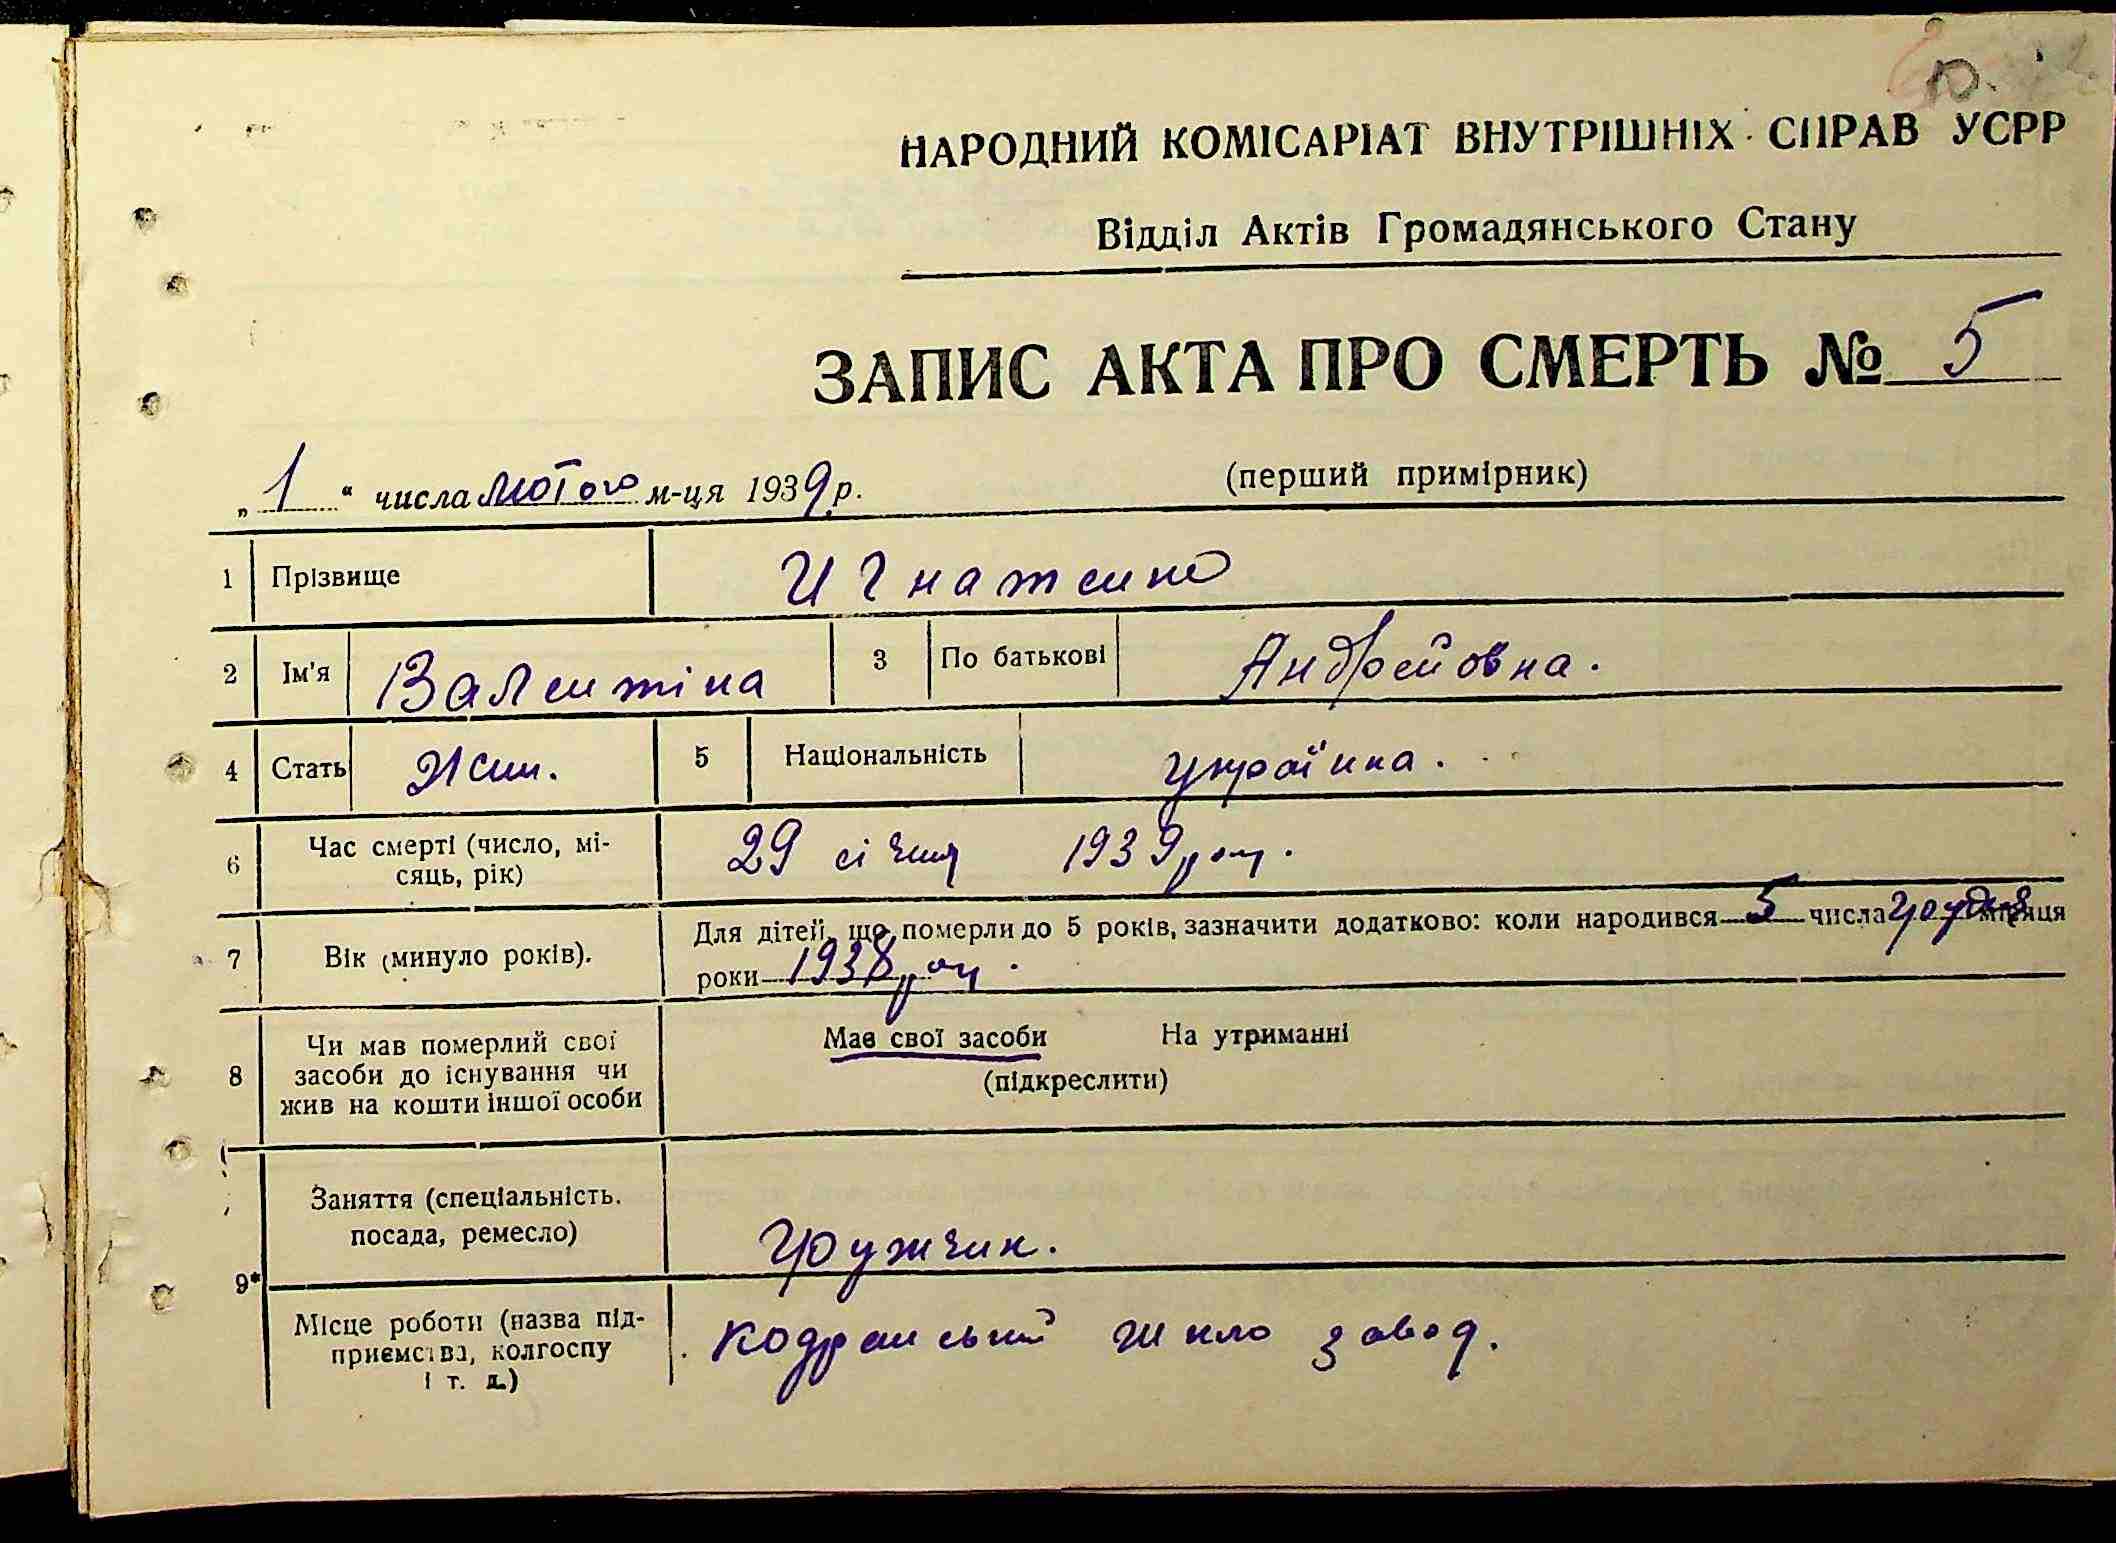 10.
НАРОДНИЙ КОМІСАРІАТ ВНУТРІШНІХ СПРАВ УСРР
Відділ Актів Громадянського Стану
ЗАПИС АКТА ПРО СМЕРТЬ № 5
„ 1 “ числа лютого м-ця 1939 р. (перший примірник)
1 Прізвище Игнатенко
2 Ім'я Валентіна 3 По батькові Андрейовна.
4 Стать Жін. 5 Національність українка.
6 Час смерті (число, мі-
сяць, рік) 29 січня 1939 року.
7 Вік (минуло років). Для дітей, що померли до 5 років, зазначити додатково: коли народився 5 числа грудня місяця
роки 1938 року.
8 Чи мав померлий свої
засоби до існування чи
жив на кошти іншої особи Має свої засоби На утриманні
(підкреслити)
9* Заняття (спеціальність.
посада, ремесло) Грузчик.
Місце роботи (назва під-
приємства, колгоспу
і т. д.) Кодранський шкло завод.